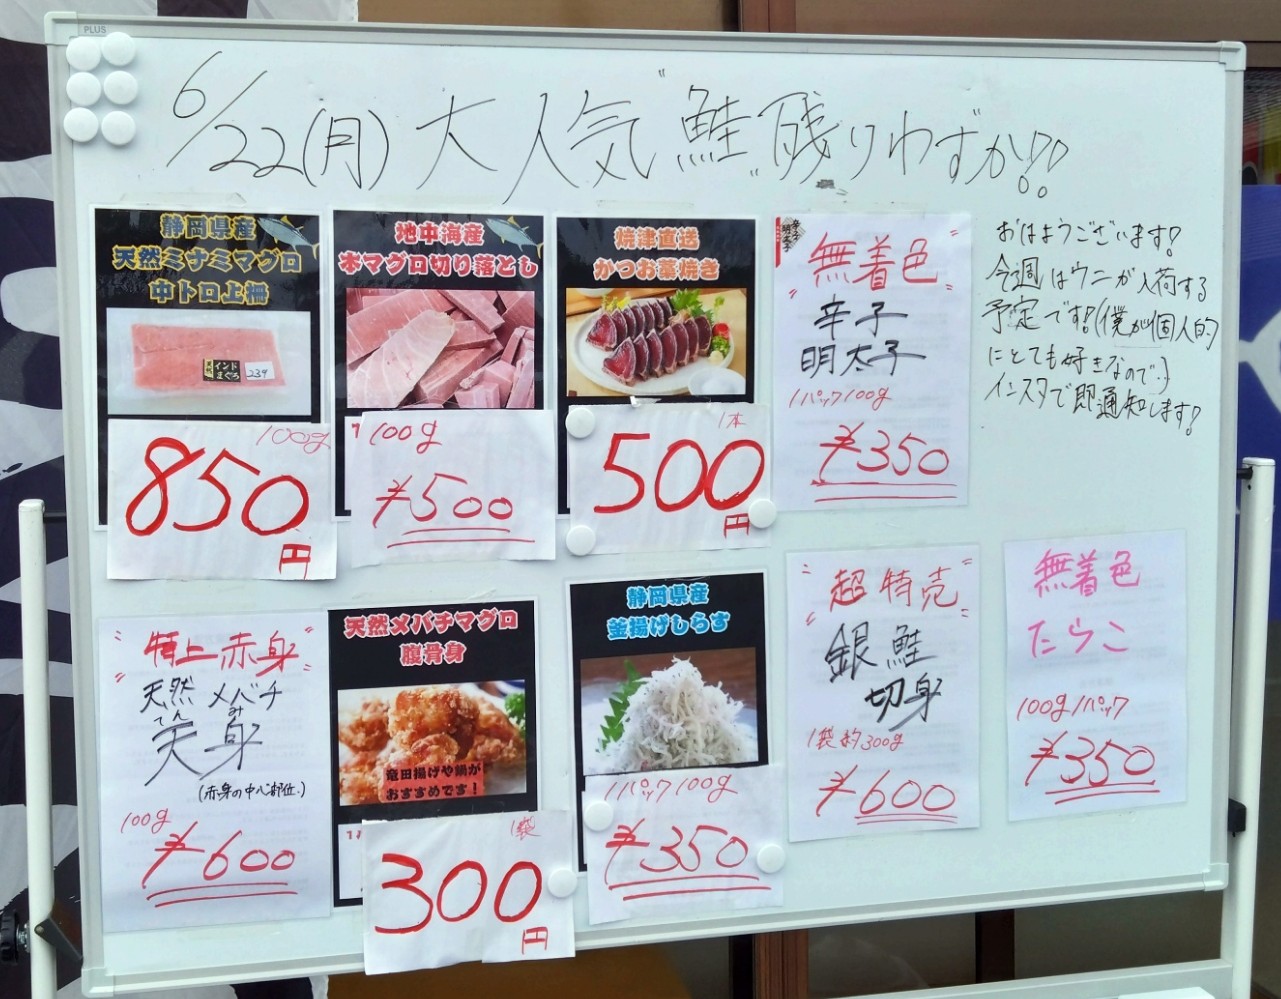 PLUS
6/22(月) 大人気"鮭"残りわずか!?
静岡県産
天然ミナミマグロ
中トロ上柵
インド
まぐろ
239
100g
850
円
地中海産
本マグロ切り落とし
100g
¥500
焼津直送
かつお藁焼き
1本
500
円
辛子
明太子
"無着色"
辛子
明太子
1パック100g
¥350
おはようございます!
今週はウニが入荷する
予定です!(僕が個人的
にとても好きなので。)
インスタで即通知します!
"特上赤身"
天然メバチ
てんみ
天身
(赤身の中心部位。)
100g
¥600
天然メバチマグロ
腹骨身
竜田揚げや鍋が
おすすめです!
1袋
300
円
静岡県産
釜揚げしらす
1パック100g
¥350
"超特売"
銀鮭
切身
1袋約300g
¥600
無着色
たらこ
100g1パック
¥350